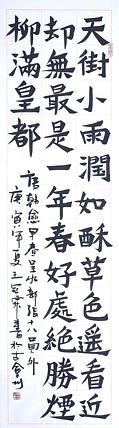 天街小雨潤如酥草色遙看近
却無最是一年春好處絕勝煙
柳滿皇都
唐韓愈早春呈水部張十八員外
庚寅年夏王